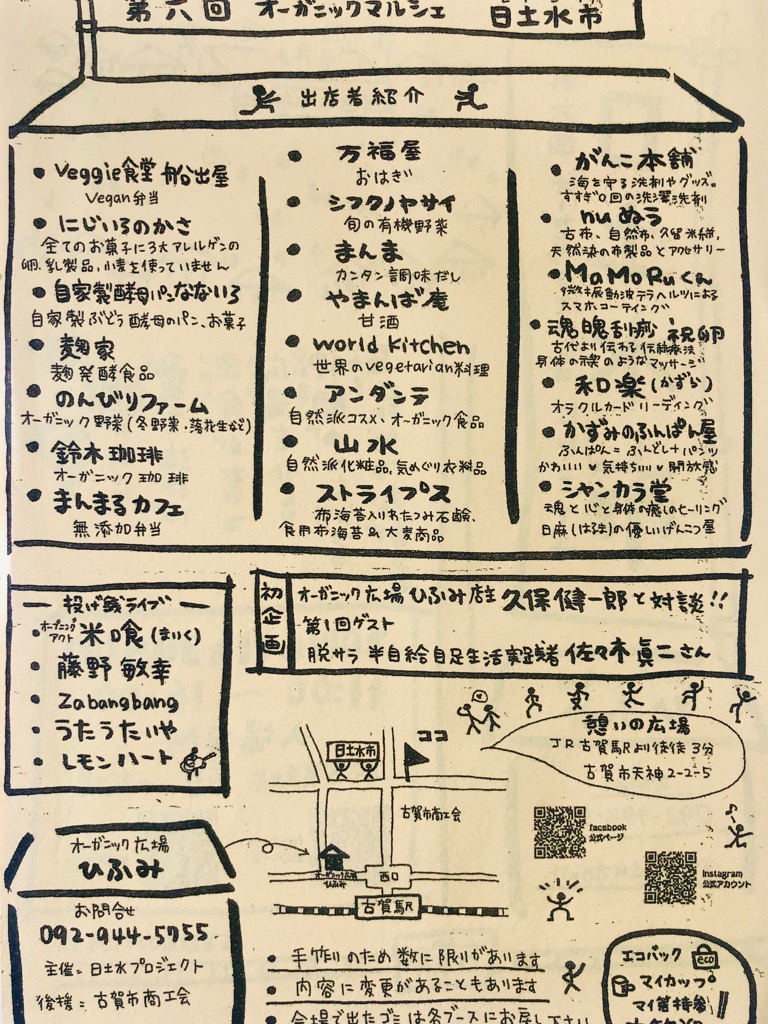 第六回 オーガニックマルシェ 日土水市
出店者紹介
• Veggie食堂 船出屋
Vegan弁当
• にじいろのかさ
全てのお菓子に3大アレルゲンの
卵、乳製品、小麦を使っていません
• 自家製酵母パンなないろ
自家製ぶどう酵母のパン、お菓子
• 麹家
麹発酵食品
• のんびりファーム
オーガニック野菜(冬野菜・落花生など)
• 鈴木珈琲
オーガニック珈琲
• まんまるカフェ
無添加弁当
• 万福屋
おはぎ
• シフクノヤサイ
旬の有機野菜
• まんま
カンタン調味だし
• やまんば庵
甘酒
• world kitchen
世界のvegetarian料理
• アンダンテ
自然派コスメ、オーガニック食品
• 山水
自然派化粧品、気めぐり衣料品
• ストライプス
布海苔入りれたつみ石鹸、
食用布海苔&大麦商品
• がんこ本舗
海を守る洗剤やグッズ。
すすぎ0回の洗濯洗剤
• nuぬう
古布、自然布、久留米絣、
天然染の布製品とアクセサリー
• MaMoRuくん
微振動波テラヘルツによる
スマホコーティング
• 魂魄刮痧 祝卵
古代より伝わる伝統療法
身体の禊のようなマッサージ
• 和楽(かずら)
オラクルカードリーディング
• かずみのふんぱん屋
ふんぱん=ふんどしパンツ
かわいい♥気持ちいい♥開放感
• シャンカラ堂
魂と心と身体の癒しのヒーリング
日麻(はるま)の優しいげんこつ屋
― 投げ銭ライブ ―
• オープニングアクト 米喰(まいく)
• 藤野 敏幸
• Zabangbang
• うたうたいや
• レモンハート
初企画
オーガニック広場ひふみ店主 久保健一郎と対談!!
第1回ゲスト
脱サラ 半自給自足生活実践者 佐々木眞二さん
憩いの広場
JR古賀駅より徒徒3分
古賀市天神2-2-5
日土水市
ココ
古賀市商工会
オーガニック広場
ひふみ
西口
古賀駅
facebook
公式ページ
Instagram
公式アカウント
オーガニック広場
ひふみ
お問合せ
092-944-5755
主催=日土水プロジェクト
後援=古賀市商工会
• 手作りのため数に限りがあります
• 内容に変更があることもあります
• 会場で出たゴミは各ブースにお戻し下さい
エコバック eco
マイカップ
マイ箸持参